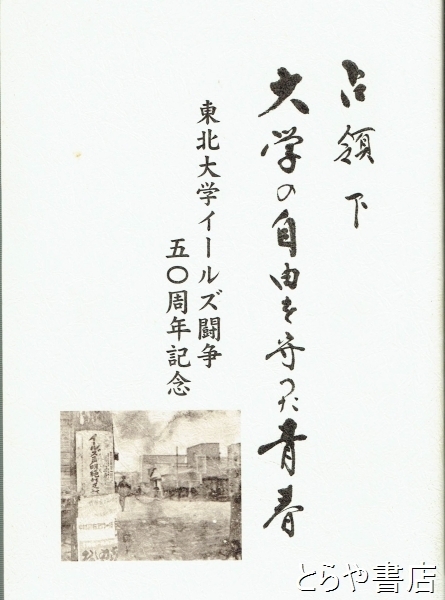 占領下
大学の自由を守った青春
東北大学イールズ闘争
五〇周年記念
とらや書店